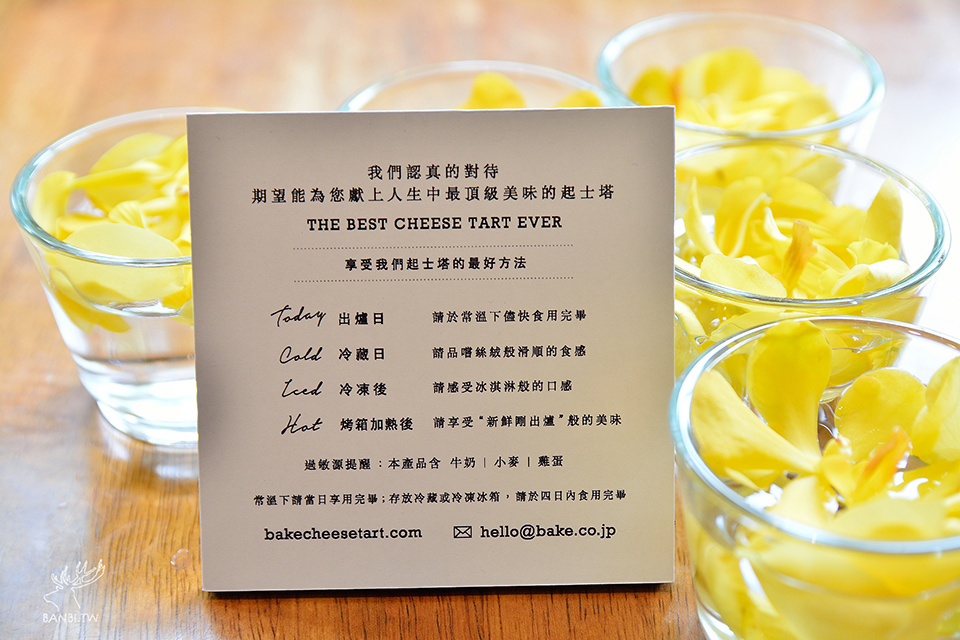 我們認真的對待
期望能為您獻上人生中最頂級美味的起士塔
THE BEST CHEESE TART EVER
享受我們起士塔的最好方法
Today 出爐日 請於常溫下儘快食用完畢
Cold 冷藏日 請品嚐絲絨般滑順的食感
Iced 冷凍後 請感受冰淇淋般的口感
Hot 烤箱加熱後 請享受“新鮮剛出爐”般的美味
過敏源提醒：本產品含 牛奶 | 小麥 | 雞蛋
常溫下請當日享用完畢；存放冷藏或冷凍冰箱，請於四日內食用完畢
bakecheesetart.com hello@bake.co.jp
BANBI.TW